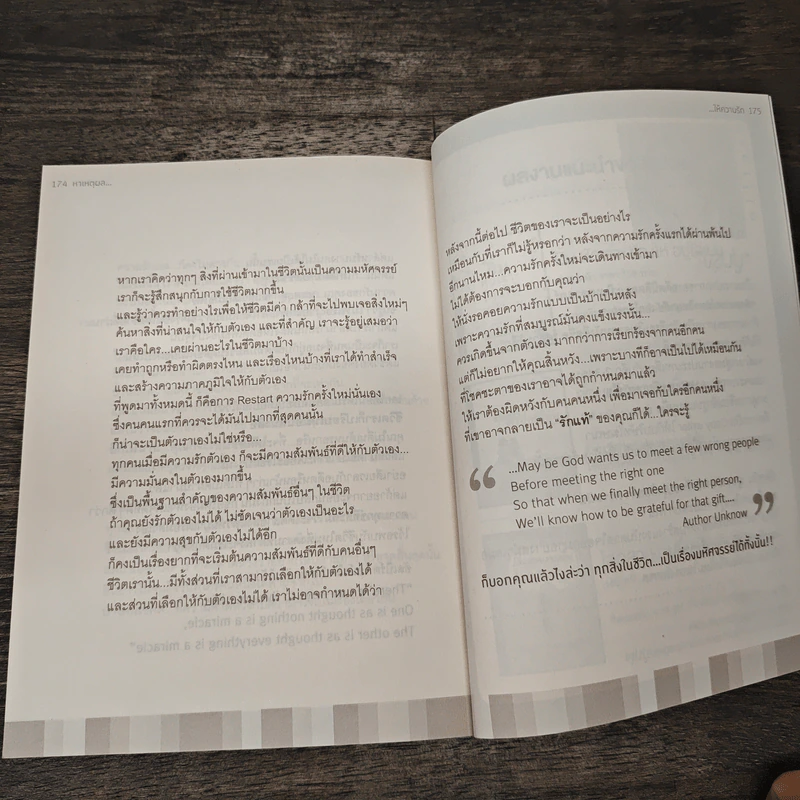 174 หาเหตุผล...
หากเราคิดว่าทุกๆ สิ่งที่ผ่านเข้ามาในชีวิตนั้นเป็นความมหัศจรรย์
เราก็จะรู้สึกสนุกกับการใช้ชีวิตมากขึ้น
และรู้ว่าควรทำอย่างไรเพื่อให้ชีวิตมีค่า กล้าที่จะไปพบเจอสิ่งใหม่ๆ
ค้นหาสิ่งที่น่าสนใจให้กับตัวเอง และที่สำคัญ เราจะรู้อยู่เสมอว่า
เราคือใคร...เคยผ่านอะไรในชีวิตมาบ้าง
เคยทำถูกหรือทำผิดตรงไหน และเรื่องไหนบ้างที่เราได้ทำสำเร็จ
และสร้างความภาคภูมิใจให้กับตัวเอง
ที่พูดมาทั้งหมดนี้ ก็คือการ Restart ความรักครั้งใหม่นั่นเอง
ซึ่งคนคนแรกที่ควรจะได้มันไปมากที่สุดคนนั้น
ก็น่าจะเป็นตัวเราเองไม่ใช่หรือ...
ทุกคนเมื่อมีความรักตัวเอง ก็จะมีความสัมพันธ์ที่ดีให้กับตัวเอง...
มีความมั่นคงในตัวเองมากขึ้น
ซึ่งเป็นพื้นฐานสำคัญของความสัมพันธ์อื่นๆ ในชีวิต
ถ้าคุณยังรักตัวเองไม่ได้ ไม่ชัดเจนว่าตัวเองเป็นอะไร
และยังมีความสุขกับตัวเองไม่ได้อีก
ก็คงเป็นเรื่องยากที่จะเริ่มต้นความสัมพันธ์ที่ดีกับคนอื่นๆ
ชีวิตเรานั้น...มีทั้งส่วนที่เราสามารถเลือกให้กับตัวเองได้
และส่วนที่เลือกให้กับตัวเองไม่ได้ เราไม่อาจกำหนดได้ว่า
...ให้ความรัก 175
หลังจากนี้ต่อไป ชีวิตของเราจะเป็นอย่างไร
เหมือนกับที่เราก็ไม่รู้หรอกว่า หลังจากความรักครั้งแรกได้ผ่านพ้นไป
อีกนานไหม...ความรักครั้งใหม่จะเดินทางเข้ามา
ไม่ได้ต้องการจะบอกกับคุณว่า
ให้นั่งรอคอยความรักแบบเป็นบ้าเป็นหลัง
เพราะความรักที่สมบูรณ์มั่นคงแข็งแรงนั้น...
ควรเกิดขึ้นจากตัวเอง มากกว่าการเรียกร้องจากคนอีกคน
แต่ก็ไม่อยากให้คุณสิ้นหวัง...เพราะบางทีก็อาจเป็นไปได้เหมือนกัน
ที่โชคชะตาของเราอาจได้ถูกกำหนดมาแล้ว
ให้เราต้องผิดหวังกับคนคนหนึ่ง เพื่อมาเจอกับใครอีกคนหนึ่ง
ที่เขาอาจกลายเป็น “รักแท้” ของคุณก็ได้...ใครจะรู้
“ ...May be God wants us to meet a few wrong people
Before meeting the right one
So that when we finally meet the right person,
We'll know how to be grateful for that gift.... ”
Author Unknow
ก็บอกคุณแล้วไงล่ะว่า ทุกสิ่งในชีวิต...เป็นเรื่องมหัศจรรย์ได้ทั้งนั้น!!